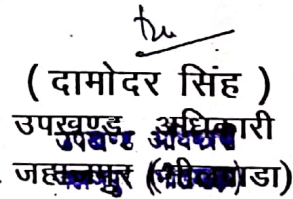 ( दामोदर सिंह )
उपखण्ड अधिकारी
जहाजपुर (भीलवाड़ा)